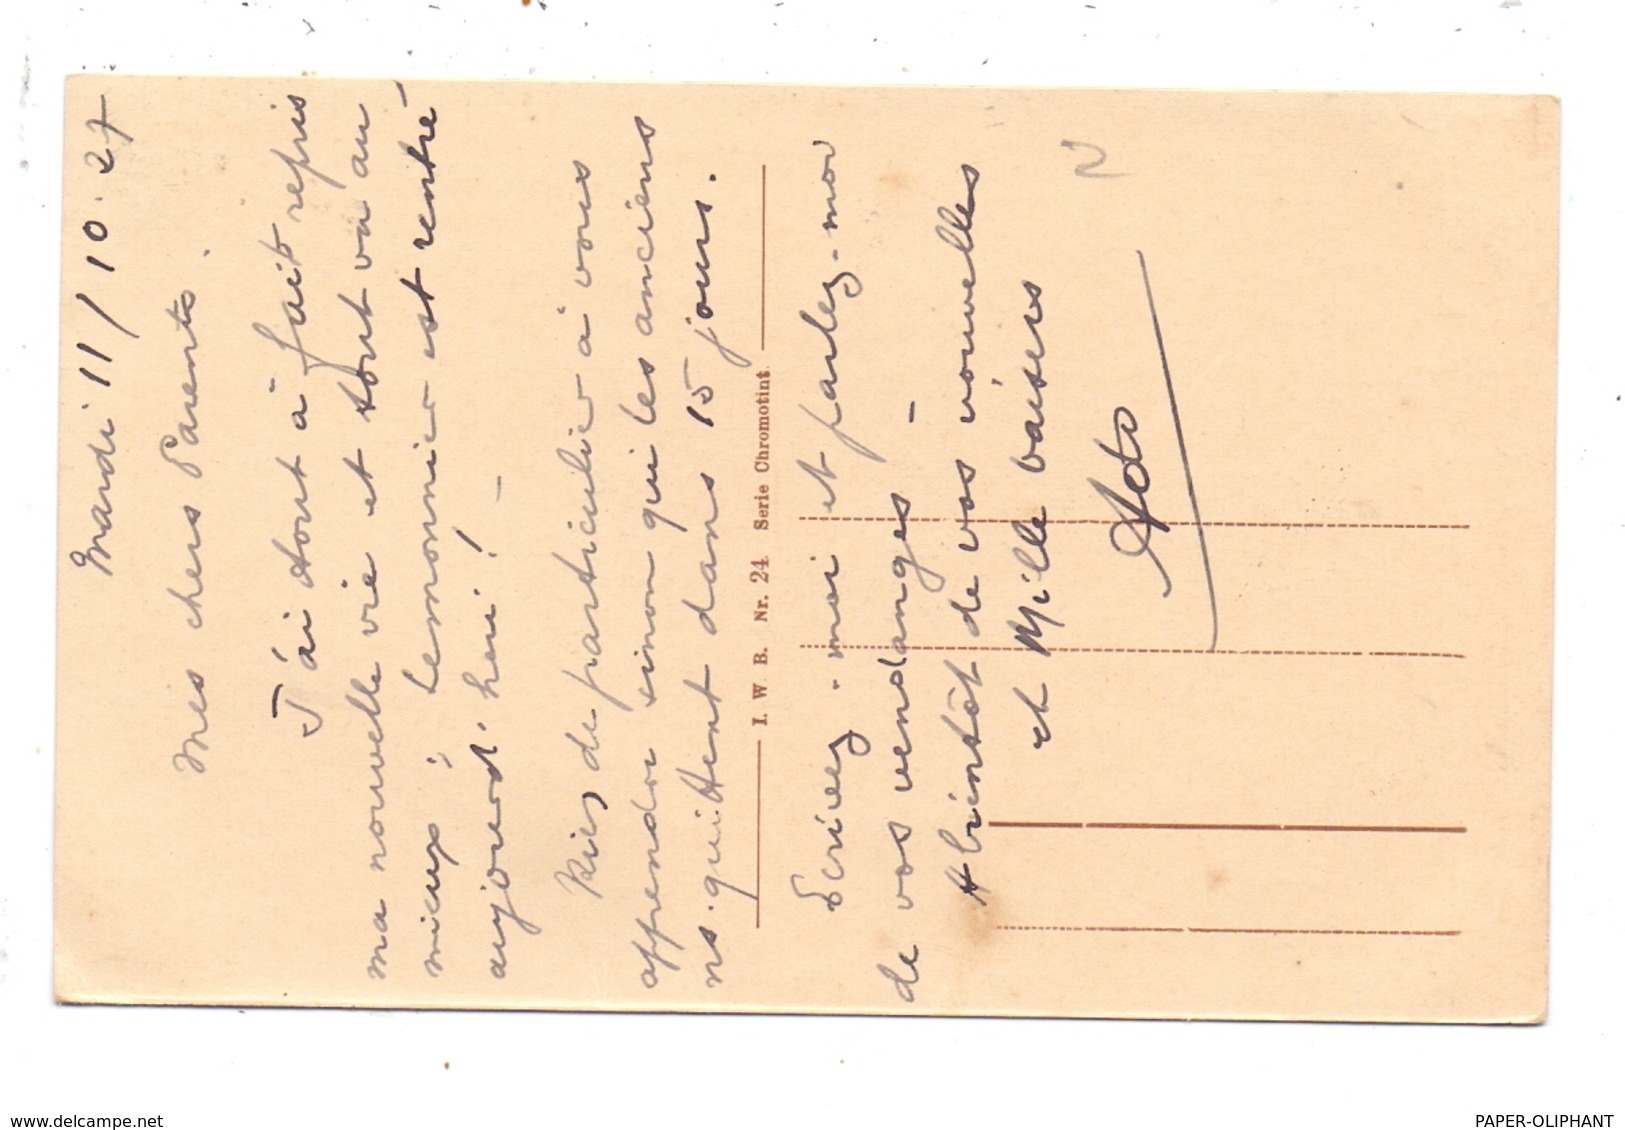 Mardi 11/10.27
Mes chers Parents.
J'ai tout à fait repris
ma nouvelle vie et tout va au
mieux ; Lemonnier est rentré
aujourd'hui ! —
Rien de particulier à vous
apprendre sinon qui les anciens
ns. quittent dans 15 jours.
I. W. B. Nr. 24. Serie Chromotint.
Ecrivez-moi et parlez-moi
de vos vendanges —
A bientôt de vos nouvelles
et Mille baisers
delcampe.net
PAPER-OLIPHANT